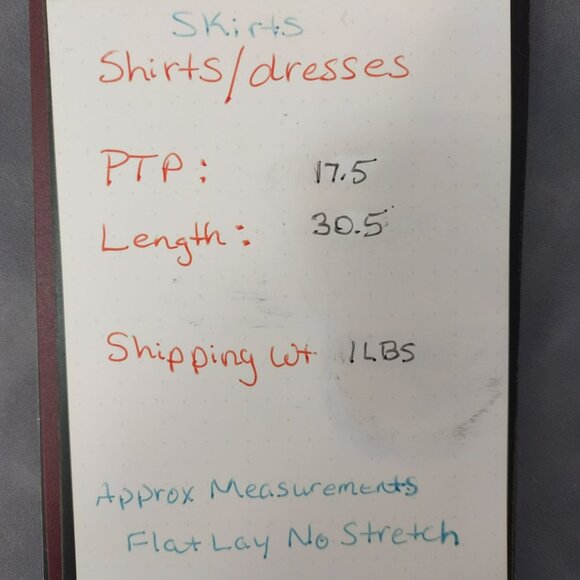 Skirts
Shirts/dresses
PTP: 17.5
Length: 30.5
Shipping wt 1LBS
Approx Measurements
Flat Lay No Stretch